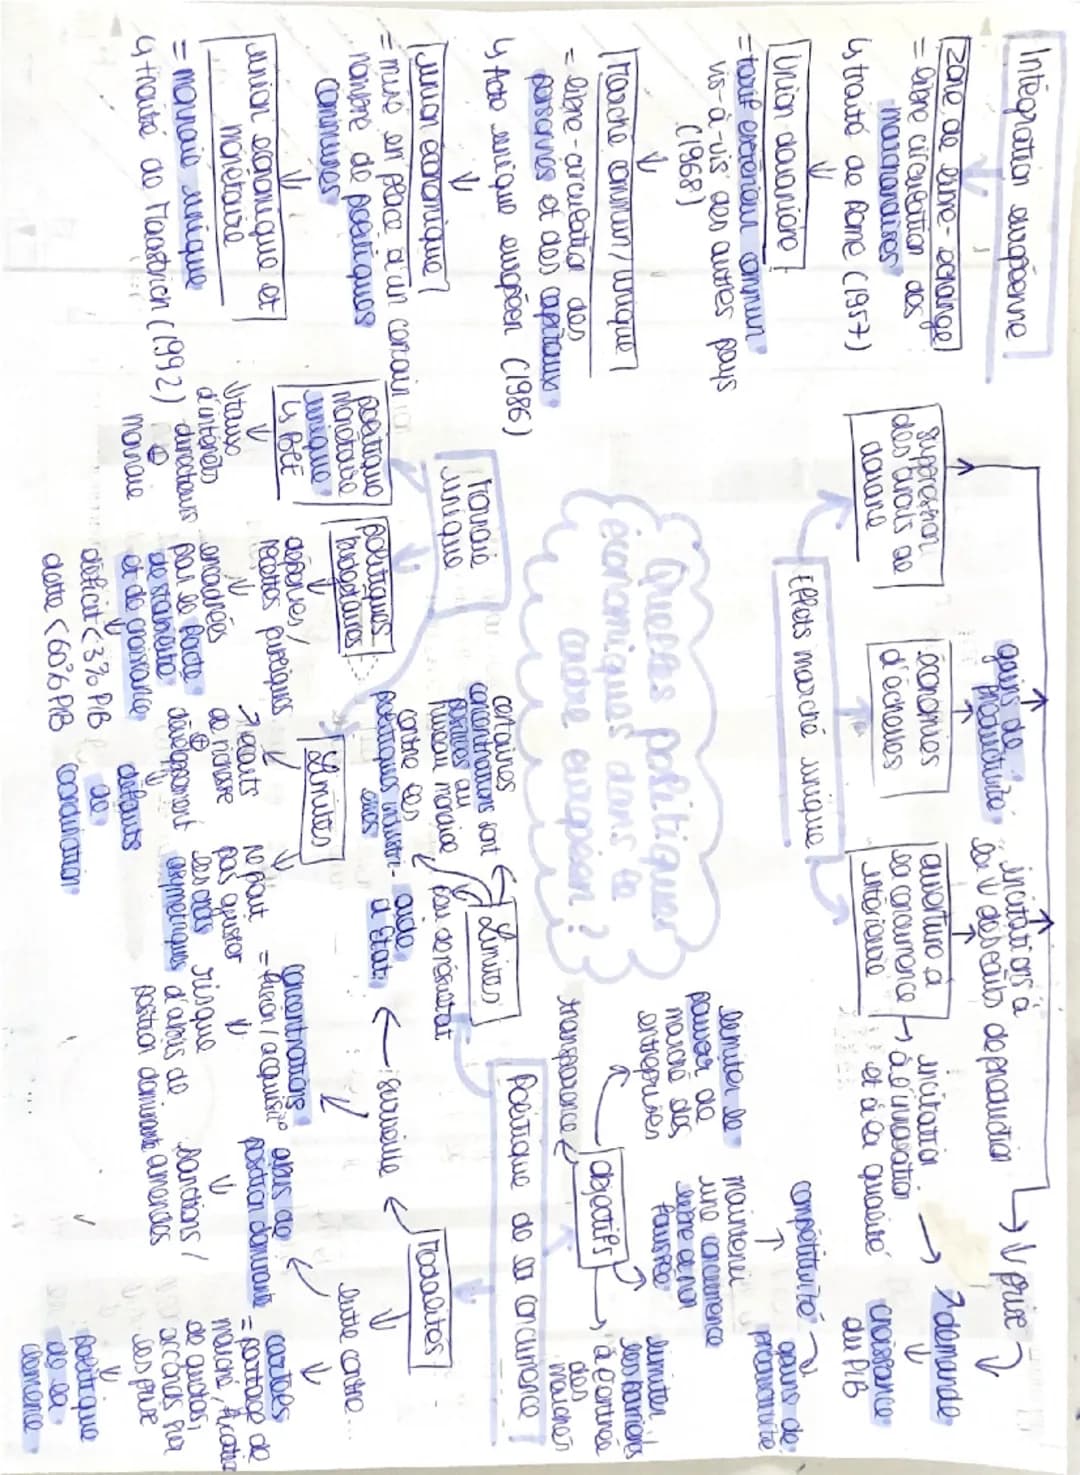 Intégration européenne
Zone de libre-échange
= libre circulation des
marchandises
↳ traité de Rome (1957)
Union douanière
= tarif extérieur commun
vis-à-vis des autres pays
(1968)
Marché commun / unique
= libre-circulation des
personnes et des capitaux
↳ Acte unique européen (1986)
Union économique
= mise en place d'un certain
nombre de politiques
communes
union économique et
monétaire
= monnaie unique
↳ traité de Maastrich (1992)
Quelles politiques
économiques dans le
cadre européen ?
Effets marché unique
suppression
des droits de
douane
économies
d'échelles
ouverture à
la concurrence
intérieure
gains de
productivité
incitations à
la ↓ des coûts de production
→ ↓ prix
incitation
→ à l'innovation
et à la qualité
↗ demande
croissance
du PIB
compétitivité
gains de
productivité
Politique de la concurrence
objectifs
transparence
limiter le
pouvoir de
marché des
entreprises
maintenir
une concurrence
libre et non
faussée
limiter
les barrières
à l'entrée
des
marchés
Limites
certaines
concentrations sont
positives au
niveau mondial
contre les
politiques industri-
elles
peu de résultat
Modalités
surveille
aide
d'État
concentrations
= fusion / acquisit°
risque
d'abus de
position dominante
lutte contre...
abus de
position dominante
sanctions /
amendes
cartels
= partage de
marché,
de quotas,
accords sur
les prix
politique
de la
clémence
Monnaie
unique
politique
monétaire
unique
↳ BCE
↓ taux
d'intérêts
directeurs
⊕
monnaie
politiques
budgétaires
dépenses /
recettes publiques
encadrées
par le Pacte
de stabilité
et de croissance
déficit < 3% PIB
dette < 60% PIB
Limites
↗ écarts
de richesse
⊕
développement
défauts
de
coordination
ne peut
pas ajuster
les chocs
asymétriques